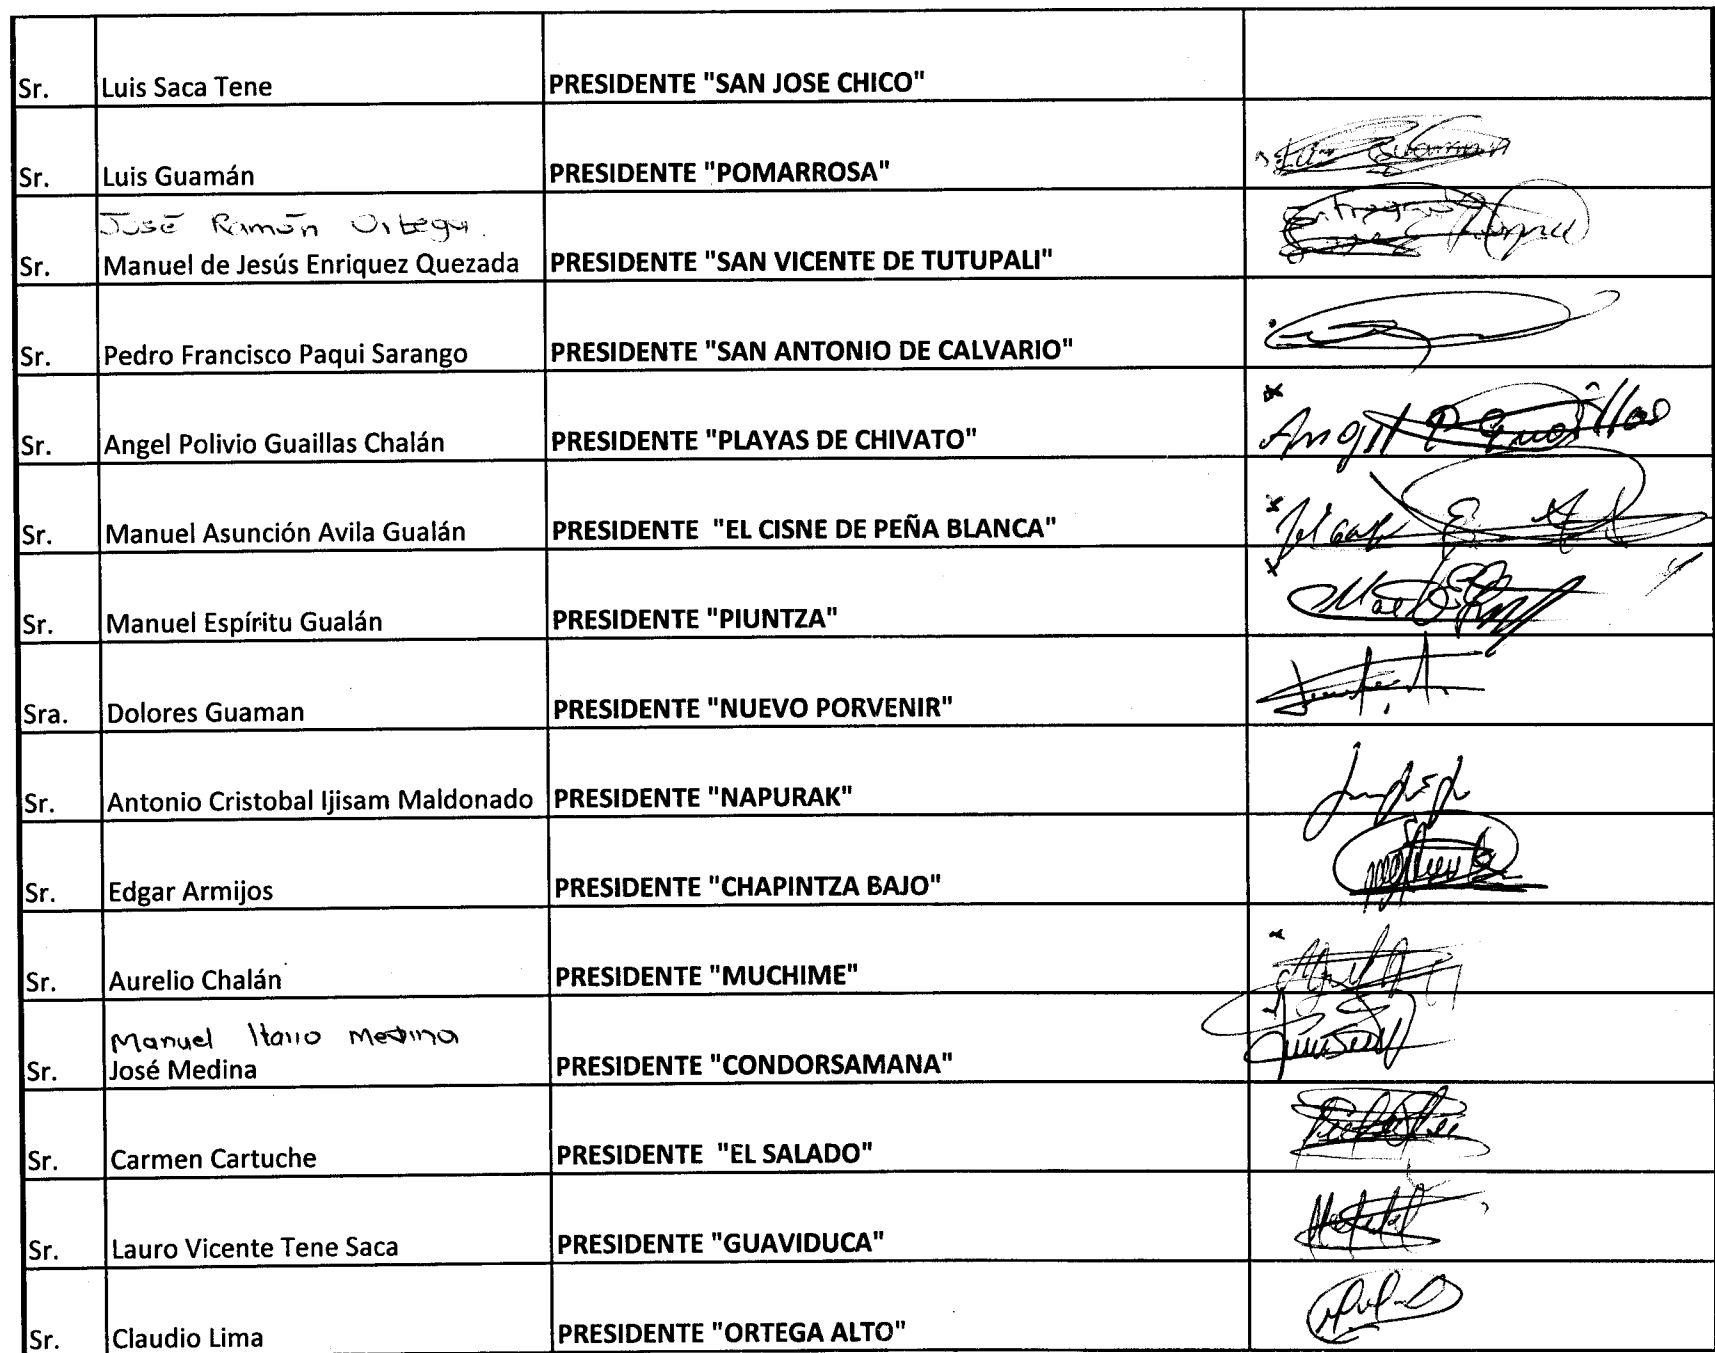 Sr. Luis Saca Tene PRESIDENTE "SAN JOSE CHICO"
Sr. Luis Guamán PRESIDENTE "POMARROSA" Guaman
José Ramón Ortega.
Sr. Manuel de Jesús Enriquez Quezada PRESIDENTE "SAN VICENTE DE TUTUPALI"
Sr. Pedro Francisco Paqui Sarango PRESIDENTE "SAN ANTONIO DE CALVARIO"
Sr. Angel Polivio Guaillas Chalán PRESIDENTE "PLAYAS DE CHIVATO" Angel P Guaillas
Sr. Manuel Asunción Avila Gualán PRESIDENTE "EL CISNE DE PEÑA BLANCA"
Sr. Manuel Espíritu Gualán PRESIDENTE "PIUNTZA"
Sra. Dolores Guaman PRESIDENTE "NUEVO PORVENIR"
Sr. Antonio Cristobal Ijisam Maldonado PRESIDENTE "NAPURAK"
Sr. Edgar Armijos PRESIDENTE "CHAPINTZA BAJO"
Sr. Aurelio Chalán PRESIDENTE "MUCHIME"
Manuel Italo Medina
Sr. José Medina PRESIDENTE "CONDORSAMANA"
Sr. Carmen Cartuche PRESIDENTE "EL SALADO"
Sr. Lauro Vicente Tene Saca PRESIDENTE "GUAVIDUCA"
Sr. Claudio Lima PRESIDENTE "ORTEGA ALTO"